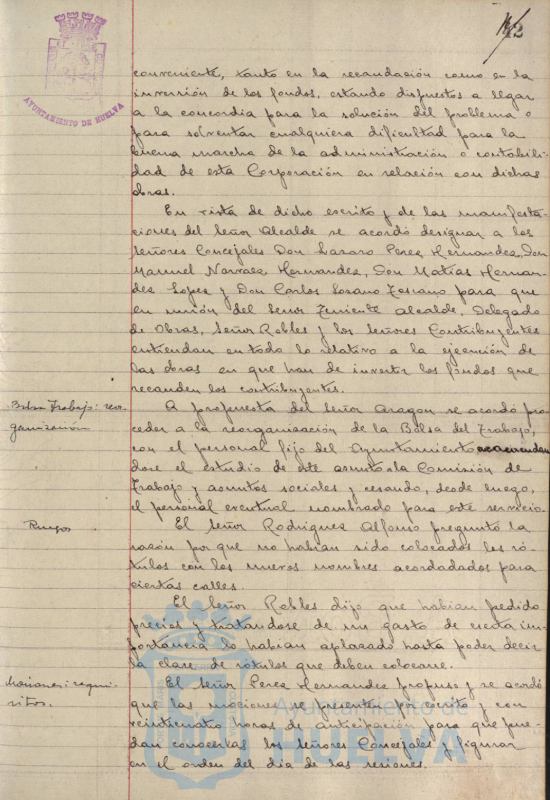 42
AYUNTAMIENTO DE HUELVA
conveniente, tanto en la recaudación como en la
inversión de los fondos, estando dispuestos a llegar
a la concordia para la solución del problema o
para solventar cualquiera dificultad para la
buena marcha de la administración o contabili-
dad de esta Corporación en relación con dichas
obras.
En vista de dicho escrito y de las manifesta-
ciones del Señor Alcalde se acordó designar a los
Señores Concejales Don Lazaro Perez Hernandez, Don
Manuel Narvaez Hernandez, Don Matías Hernan-
dez Lopez y Don Carlos Lozano Toscano para que
en unión del Señor Teniente Alcalde, Delegado
de Obras, Señor Robles y los Señores Contribuyentes
entiendan en todo lo relativo a la ejecución de
las obras en que han de invertir los fondos que
recauden los contribuyentes.
Bolsa Trabajo: reor-
ganización
A propuesta del Señor Aragon se acordó pro-
ceder a la reorganización de la Bolsa del Trabajo,
con el personal fijo del Ayuntamiento, encomendan
dose el estudio de este asunto a la Comisión de
Trabajo y asuntos sociales y cesando, desde luego,
el personal eventual nombrado para este servicio.
Ruegos
El Señor Rodriguez Alfonso preguntó la
razón por que no habian sido colocados los ró-
tulos con los nuevos nombres acordadados para
ciertas calles.
El Señor Robles dijo que habian pedido
precios y tratandose de un gasto de cierta im-
portancia lo habian aplazado hasta poder decir
la clase de rótulos que deben colocarse.
Mociones: requi-
sitos.
El Señor Perez Hernandez propuso y se acordó
que las mociones se presenten por escrito y con
veinticuatro horas de anticipación para que pue-
dan conocerlas los Señores Concejales y figurar
en el orden del dia de las sesiones.
Ayuntamiento de
HUELVA